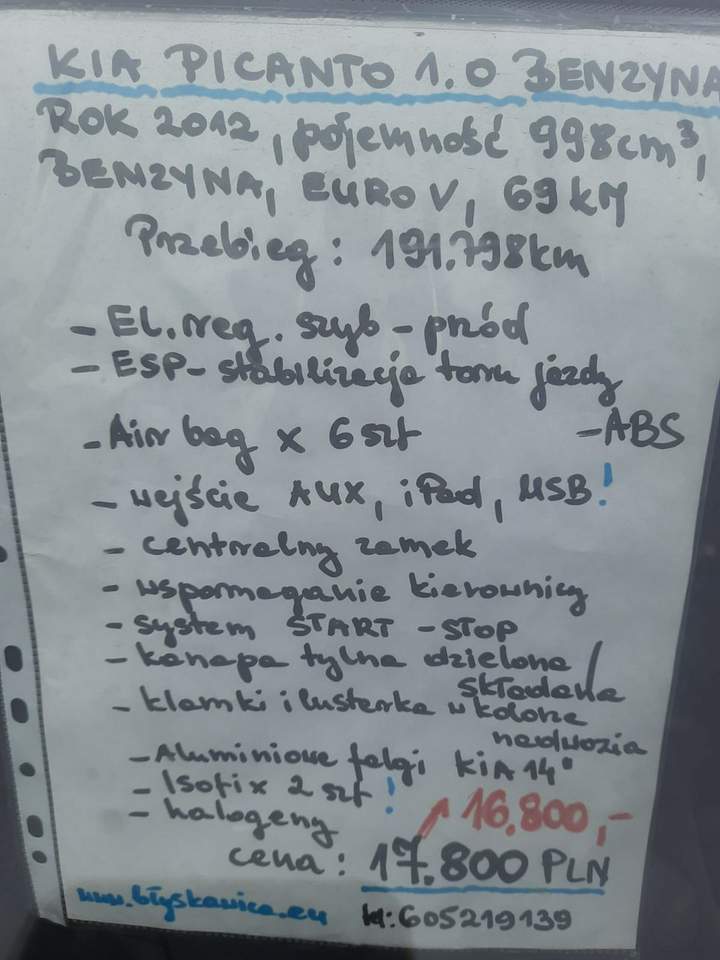 KIA PICANTO 1.0 BENZYNA
ROK 2012, pojemność 998cm³,
BENZYNA, EURO V, 69 KM
Przebieg: 191.798km
- El. reg. szyb - przód
- ESP - stabilizacja toru jazdy
- Air bag x 6 szt - ABS
- wejście AUX, iPad, USB!
- centralny zamek
- wspomaganie kierownicy
- system START - STOP
- kanapa tylna dzielona /
składana
- klamki i lusterka w kolorze
nadwozia
- Aluminiowe felgi KIA 14"
- Isofix 2 szt!
- halogeny
16.800,-
cena: 17.800 PLN
www.błyskawica.eu
tel: 605219139